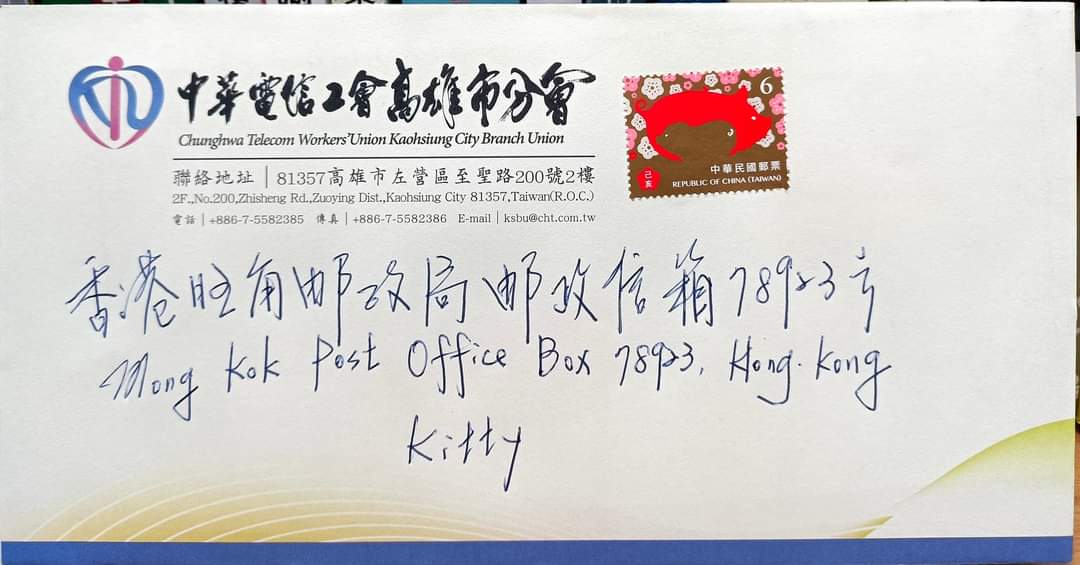 中華電信工會高雄市分會
Chunghwa Telecom Workers' Union Kaohsiung City Branch Union
聯絡地址│81357高雄市左營區至聖路200號2樓
2F.,No.200,Zhisheng Rd.,Zuoying Dist.,Kaohsiung City 81357,Taiwan(R.O.C.)
電話│+886-7-5582385 傳真│+886-7-5582386 E-mail│ksbu@cht.com.tw
6
中華民國郵票
REPUBLIC OF CHINA (TAIWAN)
己亥
香港旺角邮政局邮政信箱78923号
Mong Kok Post Office Box 78923, Hong. Kong
Kitty